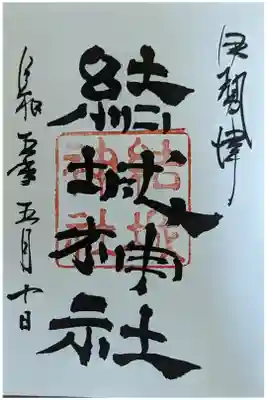 伊勢津
結城神社
結城神社
令和五年五月十日